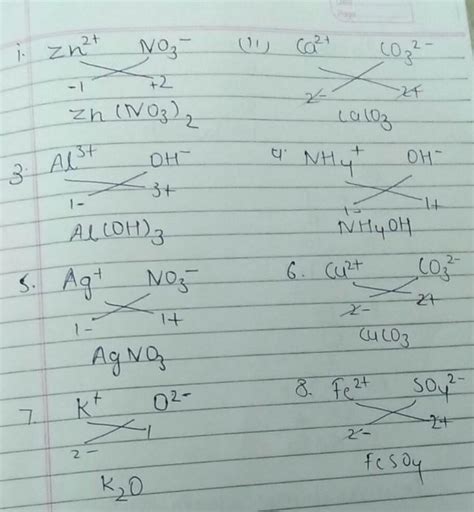 1. Zn²⁺ NO₃⁻
-1 +2
Zn(NO₃)₂
(11) Ca²⁺ CO₃²⁻
2- 2+
CaCO₃
3. Al³⁺ OH⁻
1- 3+
Al(OH)₃
4. NH₄⁺ OH⁻
1- 1+
NH₄OH
5. Ag⁺ NO₃⁻
1- 1+
AgNO₃
6. Cu²⁺ CO₃²⁻
2- 2+
CuCO₃
7. K⁺ O²⁻
2- 1
K₂O
8. Fe²⁺ SO₄²⁻
2- 2+
FeSO₄